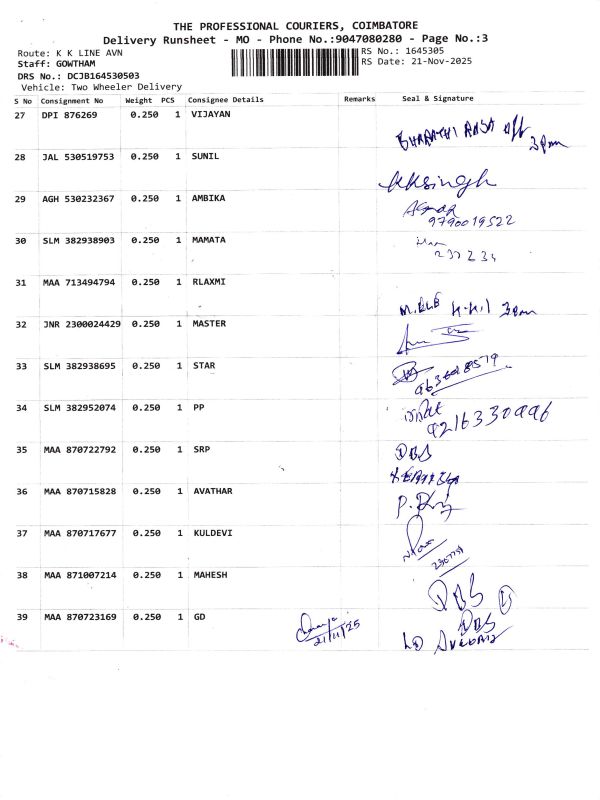 THE PROFESSIONAL COURIERS, COIMBATORE
Delivery Runsheet - MO - Phone No.:9047080280 - Page No.:3
Route: K K LINE AVN
RS No.: 1645305
Staff: GOWTHAM
RS Date: 21-Nov-2025
DRS No.: DCJB164530503
Vehicle: Two Wheeler Delivery
S No Consignment No Weight PCS Consignee Details Remarks Seal & Signature
27 DPI 876269 0.250 1 VIJAYAN
3pm
28 JAL 530519753 0.250 1 SUNIL
KKsingh
29 AGH 530232367 0.250 1 AMBIKA
9790019522
30 SLM 382938903 0.250 1 MAMATA
31 MAA 713494794 0.250 1 RLAXMI
3pm
32 JNR 2300024429 0.250 1 MASTER
33 SLM 382938695 0.250 1 STAR
34 SLM 382952074 0.250 1 PP
9216330996
35 MAA 870722792 0.250 1 SRP
DBS
36 MAA 870715828 0.250 1 AVATHAR
37 MAA 870717677 0.250 1 KULDEVI
38 MAA 871007214 0.250 1 MAHESH
DBS
39 MAA 870723169 0.250 1 GD
21/11/25
DBS